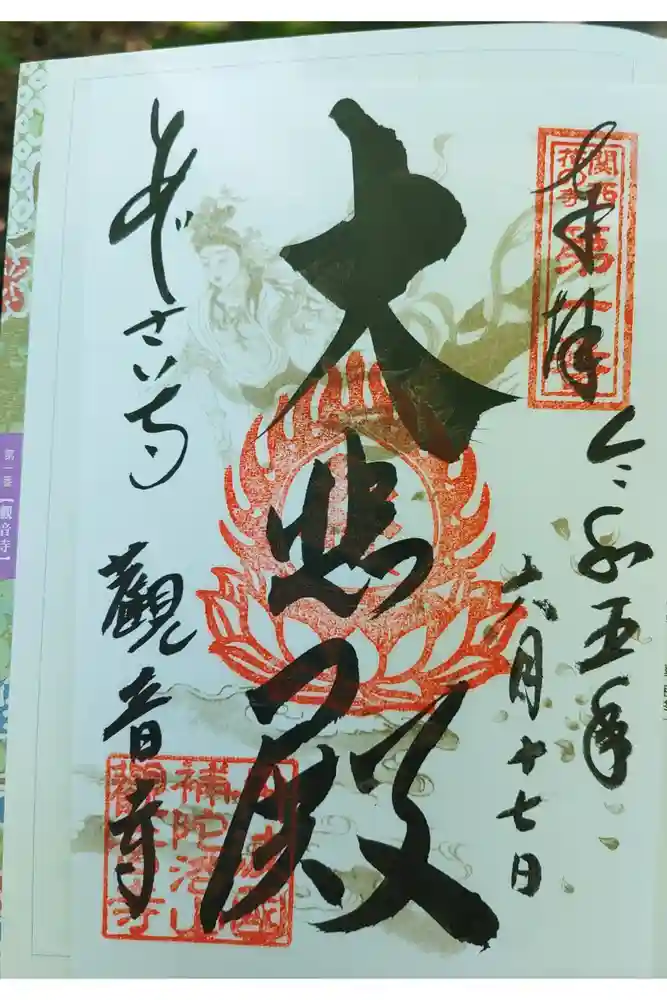 奉拝
関西
花の寺
第一番
令和五年
六月十七日
大悲殿
あじさい寺
觀音寺
補陀洛山
觀音寺
第一番【觀音寺】